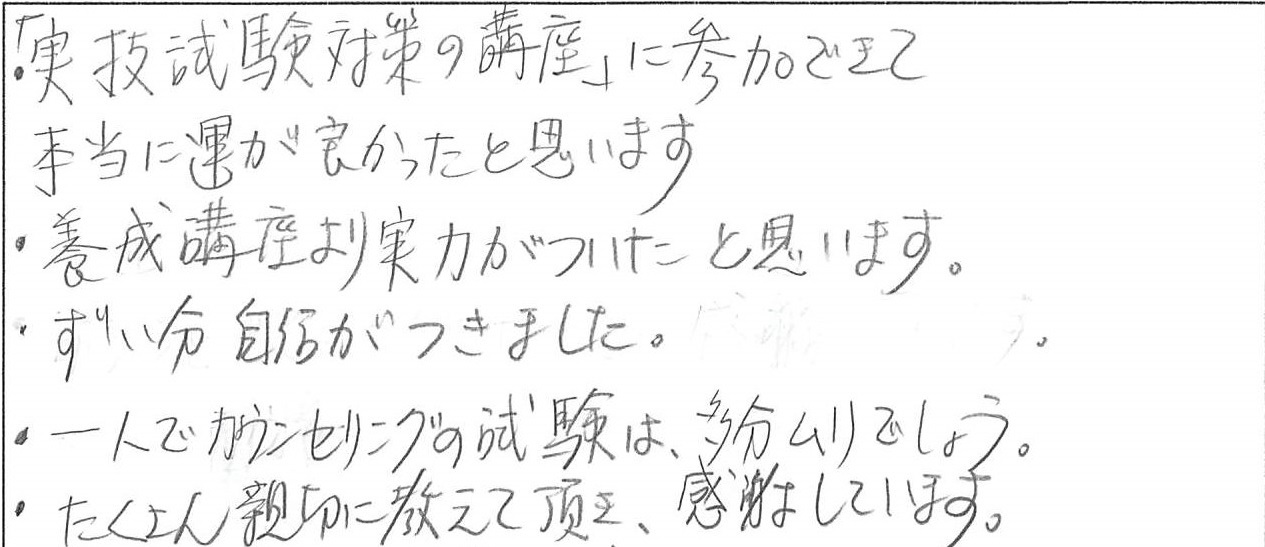 ・「実技試験対策の講座」に参加できて
本当に運が良かったと思います
・養成講座より実力がついたと思います。
・ずい分自信がつきました。
・一人でカウンセリングの試験は、多分ムリでしょう。
・たくさん親切に教えて頂き、感謝しています。